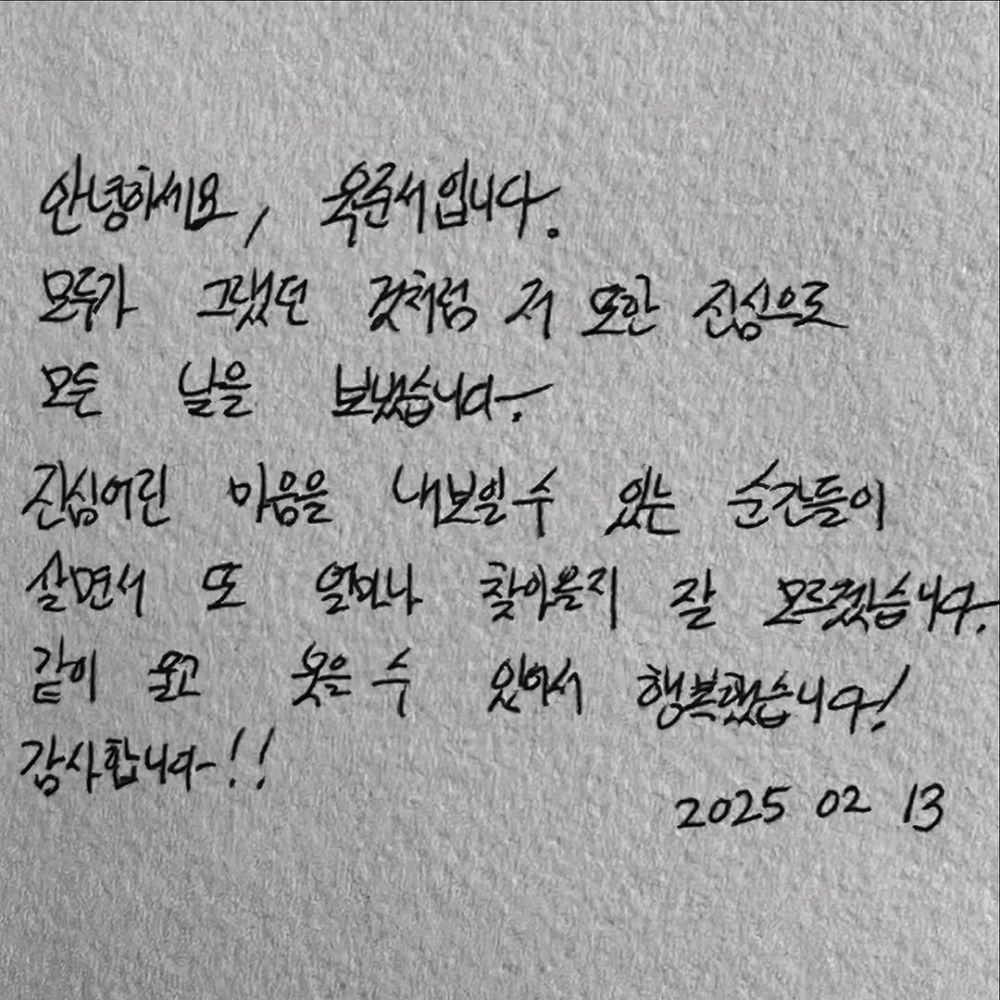 안녕하세요, 옥준서입니다.
모두가 그랬던 것처럼 저 또한 진심으로
모든 날을 보냈습니다.
진심어린 마음을 내보일 수 있는 순간들이
살면서 또 얼마나 찾아올지 잘 모르겠습니다.
같이 울고 웃을 수 있어서 행복했습니다!
감사합니다!!
2025 02 13